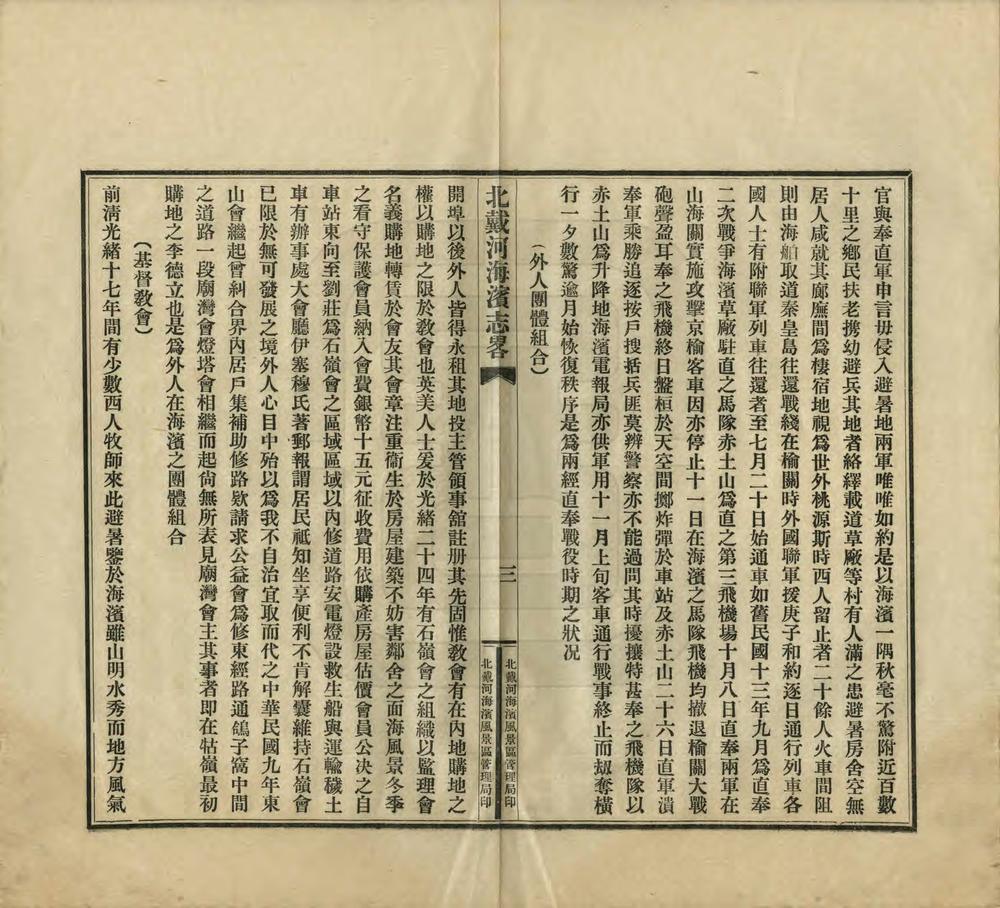 官與奉直軍申言毋侵入避暑地兩軍唯唯如約是以海濱一隅秋毫不驚附近百數
十里之鄉民扶老携幼避兵其地者絡繹載道草廠等村有人滿之患避暑房舍空無
居人咸就其廊廡間爲棲宿地視爲世外桃源斯時西人留止者二十餘人火車間阻
則由海舶取道秦皇島往還戰綫在榆關時外國聯軍援庚子和約逐日通行列車各
國人士有附聯軍列車往還者至七月二十日始通車如舊民國十三年九月爲直奉
二次戰爭海濱草廠駐直之馬隊赤土山爲直之第三飛機場十月八日直奉兩軍在
山海關實施攻擊京榆客車因亦停止十一日在海濱之馬隊飛機均撤退榆關大戰
砲聲盈耳奉之飛機終日盤桓於天空間擲炸彈於車站及赤土山二十六日直軍潰
奉軍乘勝追逐按戶搜括兵匪莫辨警察亦不能過問其時擾攘特甚奉之飛機隊以
赤土山爲升降地海濱電報局亦供軍用十一月上旬客車通行戰事終止而刼奪橫
行一夕數驚逾月始恢復秩序是爲兩經直奉戰役時期之狀况
（外人團體組合）
北戴河海濱志畧
三
北戴河海濱風景區管理局印
北戴河海濱風景區管理局印
開埠以後外人皆得永租其地投主管領事舘註册其先固惟敎會有在內地購地之
權以購地之限於敎會也英美人士爰於光緒二十四年有石嶺會之組織以監理會
名義購地轉賃於會友其會章注重衞生於房屋建築不妨害鄰舍之面海風景冬季
之看守保護會員納入會費銀幣十五元征收費用依購產房屋估價會員公決之自
車站東向至劉莊爲石嶺會之區域區域以內修道路安電燈設救生船與運輸穢土
車有辦事處大會廳伊塞穆氏著郵報謂居民祗知坐享便利不肯解囊維持石嶺會
已限於無可發展之境外人心目中殆以爲我不自治宜取而代之中華民國九年東
山會繼起曾糾合界內居戶集補助修路欵請求公益會爲修東經路通鴿子窩中間
之道路一段廟灣會燈塔會相繼而起尙無所表見廟灣會主其事者即在牯嶺最初
購地之李德立也是爲外人在海濱之團體組合
（基督敎會）
前淸光緒十七年間有少數西人牧師來此避暑鑒於海濱雖山明水秀而地方風氣